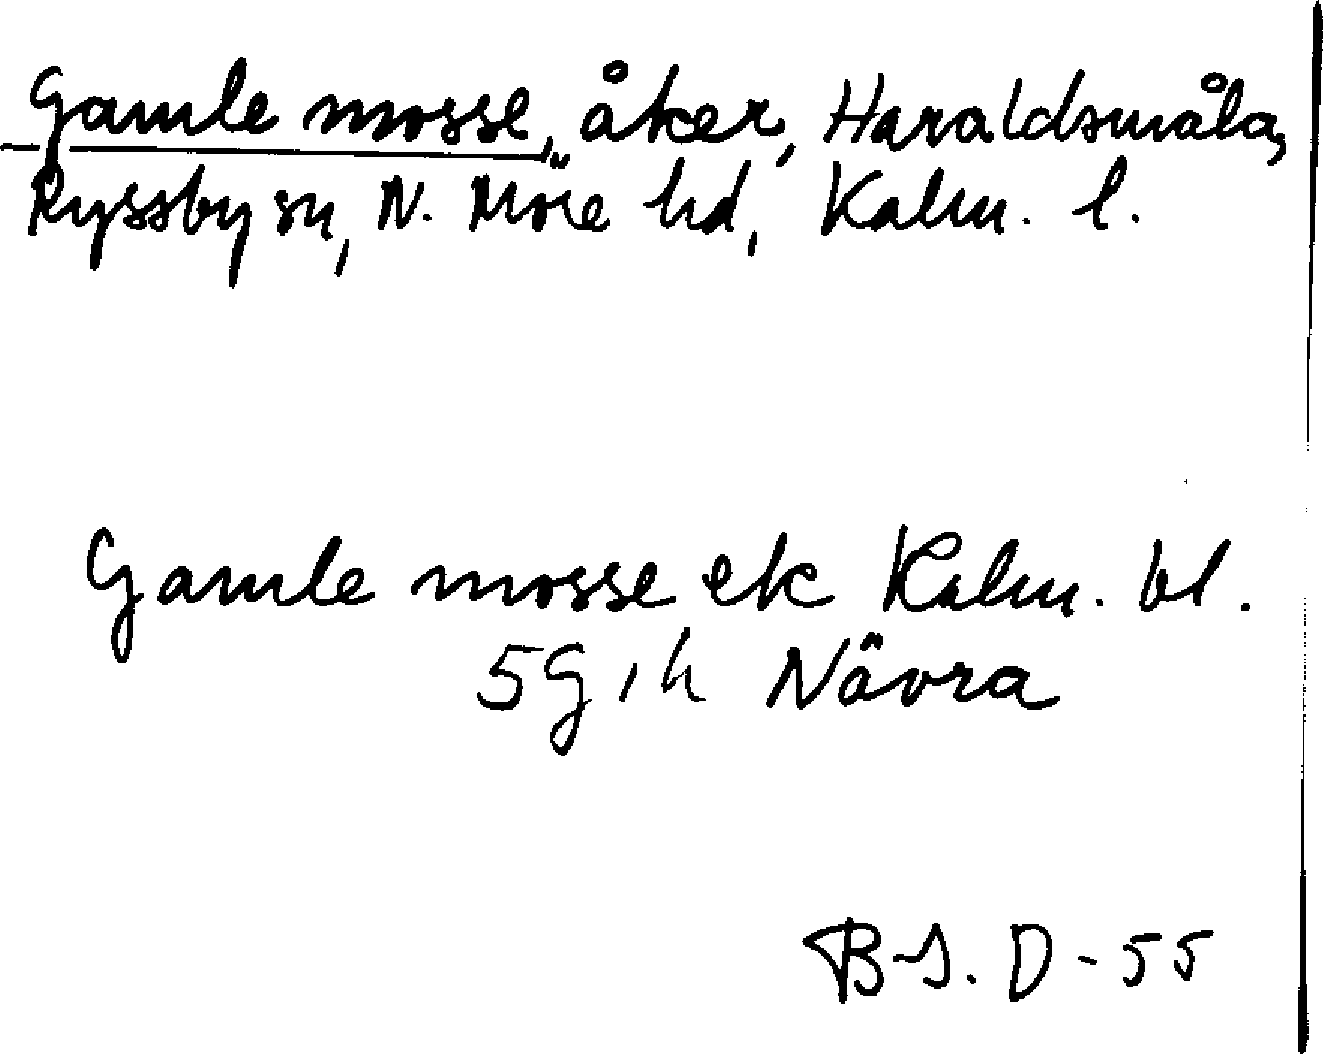 Gamle mosse, åker, Haraldsmåla,
Ryssby sn, N. Möre hd, Kalm. l.
Gamle mosse ek Kalm. bl.
5 G, h Nävra
B-S. D - 55